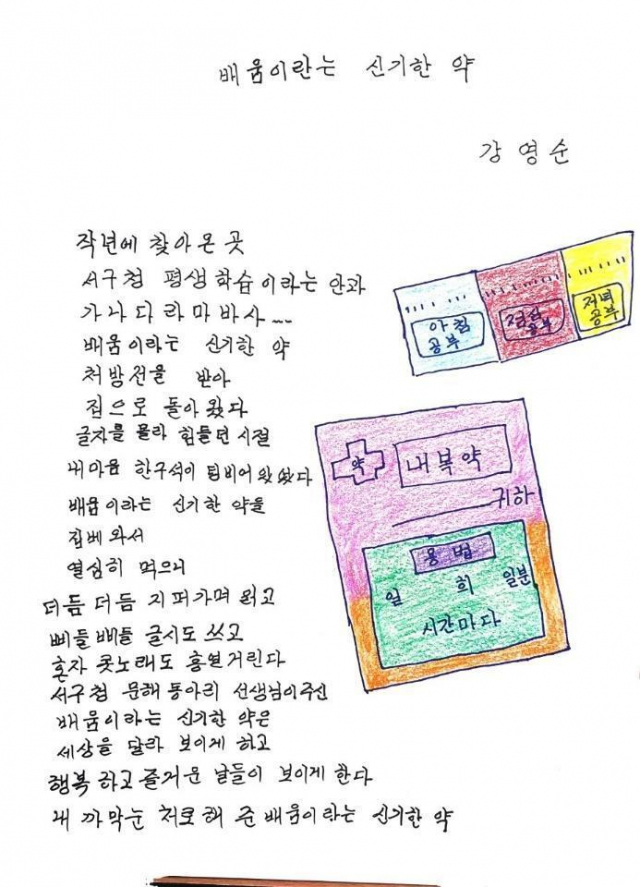 배움이란는 신기한 약
강영순
작년에 찾아온 곳
서구청 평생학습이라는 안과
가나다라마바사....
배움이라는 신기한 약
처방전을 받아
집으로 돌아왔다
글자를 몰라 힘들던 시절
내마음 한구석이 텅비어 왔었다
배움이라는 신기한 약을
집베 와서
열심히 먹으니
더듬 더듬 지퍼가며 읽고
삐들 삐들 글시도 쓰고
혼자 콧노래도 흥얼거린다
서구청 문해 동아리 선생님이주신
배움이라는 신기한 약은
세상을 달라 보이게 하고
행복하고 즐거운 날들이 보이게 한다
내 까막눈 치료해 준 배움이라는 신기한 약
아침 공부
점심 공부
저녁 공부
약
내복약
귀하
용법
일 회 일분
시간마다